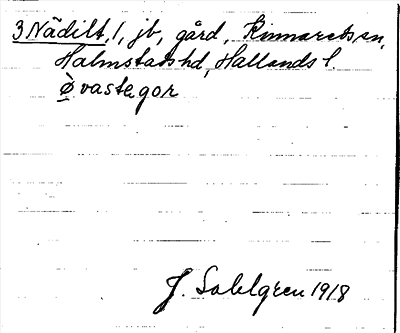 3 Nädilt, 1, jb, gård, Kinnareds sn,
Halmstads hd, Hallands l.
Øvastegor
J. Sahlgren 1918